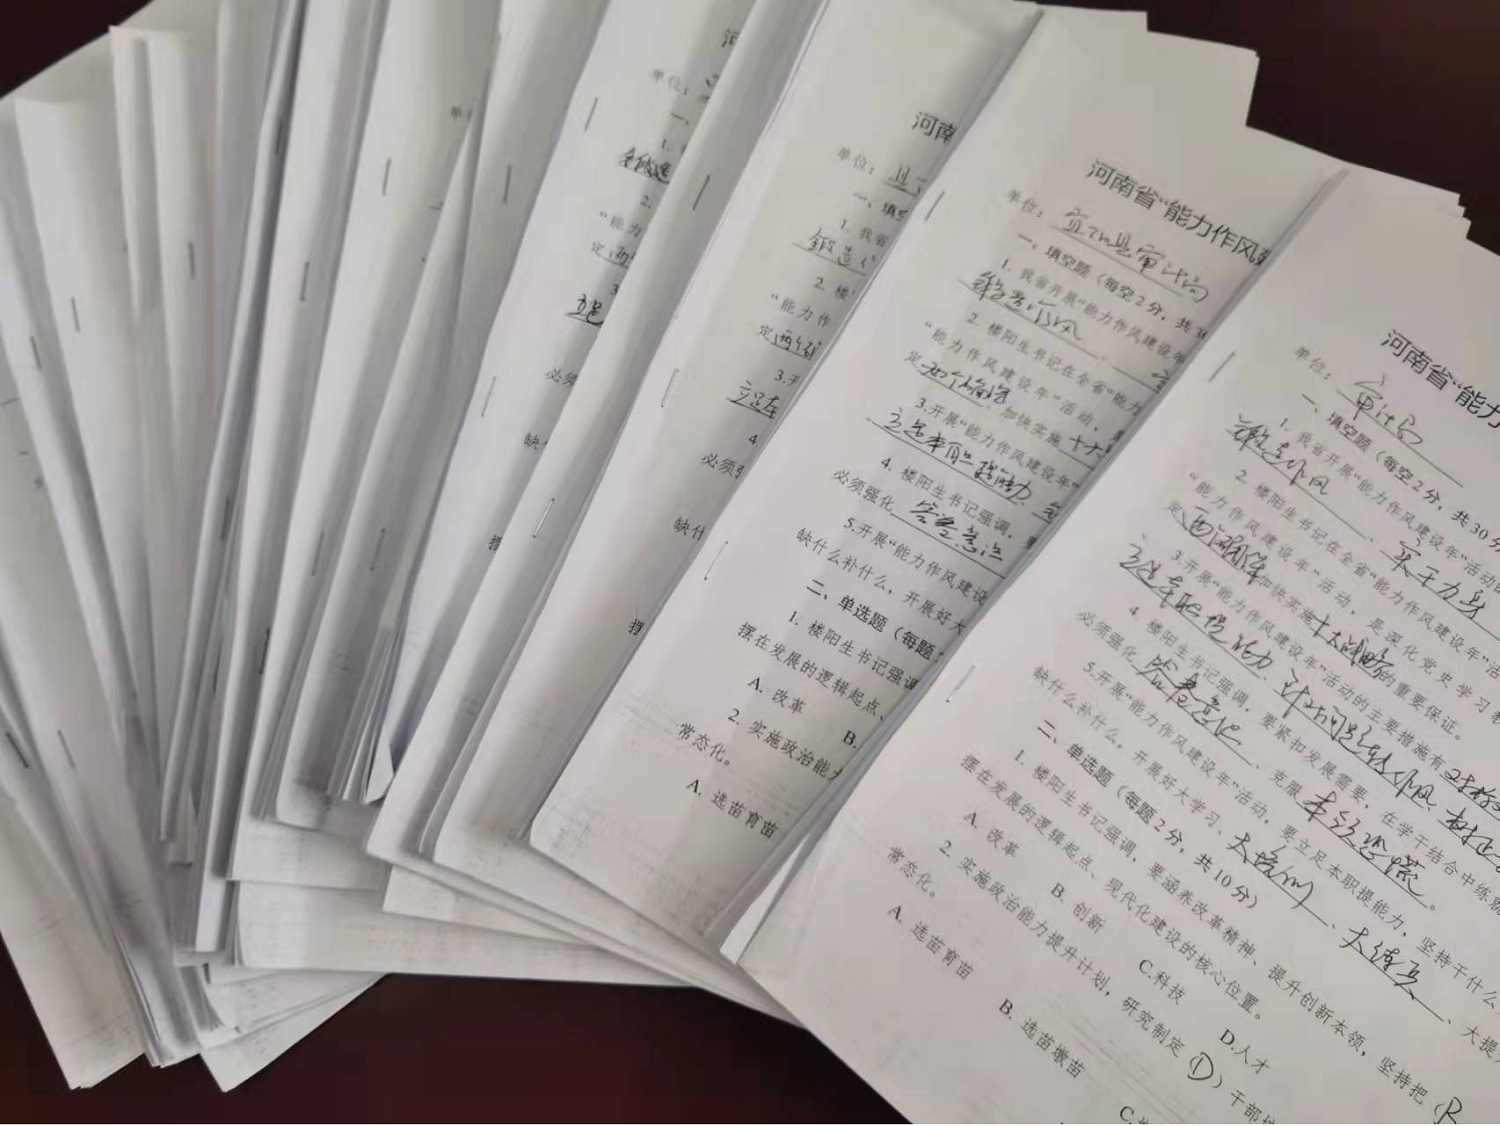 河南省“能力
单位：审计局
一、填空题（每空2分，共30分
1. 我省开展“能力作风建设年”活动的
锻造作风、实干力身
2. 楼阳生书记在全省“能力作风建设年”活
“能力作风建设年”活动，是深化党史学习教
定两个确立加快实施十大战略的重要保证。
3.开展“能力作风建设年”活动的主要措施有
立足本职提能力、
4. 楼阳生书记强调，要紧扣发展需要，在学干结合中练就
必须强化答卷意识、克服本领恐慌。
5.开展“能力作风建设年”活动，要立足本职提能力，坚持干什么
缺什么补什么，开展好大学习、大培训、大练兵、大提
二、单选题（每题2分，共10分）
1. 楼阳生书记强调，要涵养改革精神、提升创新本领，坚持把（B
摆在发展的逻辑起点、现代化建设的核心位置。
A. 改革 B. 创新 C.科技 D.人才
2. 实施政治能力提升计划，研究制定（D）干部
常态化。
A. 选苗育苗 B. 选苗墩苗 C.
河南省“能力作风建
单位：宜阳县审计局
一、填空题（每空2分，共3
1. 我省开展“能力作风建设年
锻造作风、
2. 楼阳生书记在全省“能力
“能力作风建设年”活动，是
定两个确立、加快实施十大
3.开展“能力作风建设年”
立足本职提能力、
4. 楼阳生书记强调，要
必须强化答卷意识
5.开展“能力作风建设
缺什么补什么，开展好大
二、单选题（每题
1. 楼阳生书记强调
摆在发展的逻辑起点、
A. 改革 B.
2. 实施政治能力
常态化。
A. 选苗育苗
河南
单位：县
一、填空
1. 我省
锻造作
2. 楼
“能力作
定两个确
3.开
立足本
4
必须强
缺什
摆
河
单位：
一、
1.
2.
“能力
定两
3
立足
必须
缺
摆
单